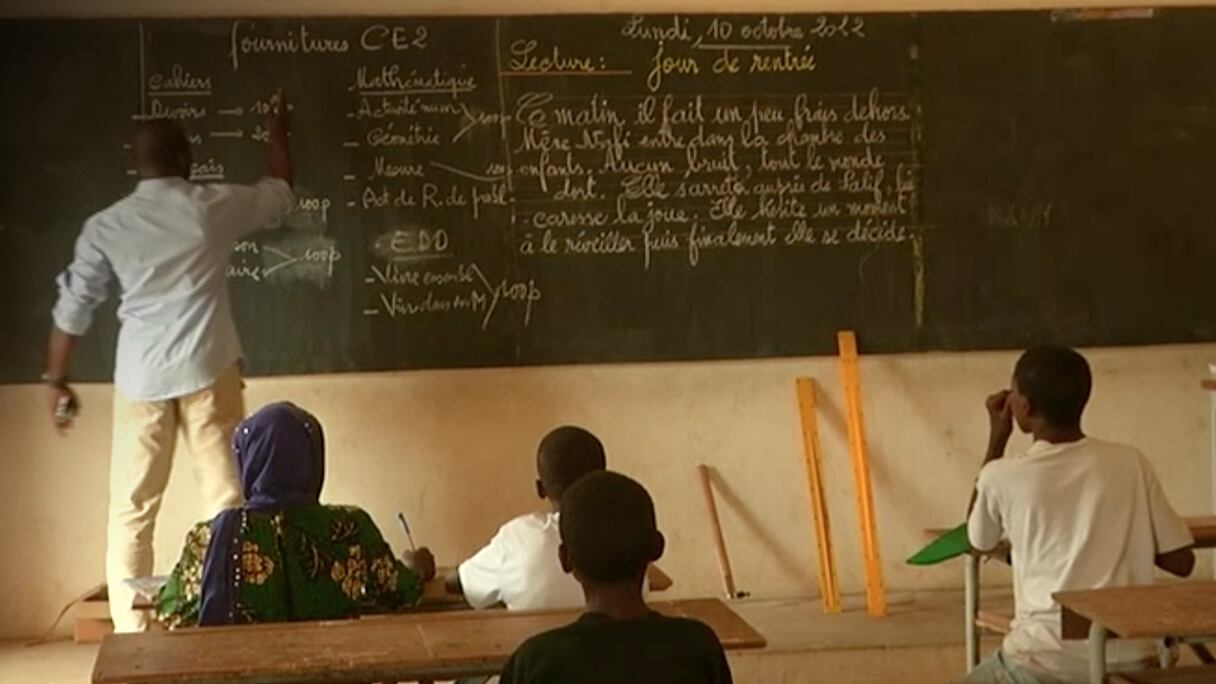 fournitures CE2
Cahiers
Devoirs → 10
Mathématique
- Activité num
- Géométrie 100p
- Mesure
- Act de R. de prob
100p
100p
EDD
- Vivre ensemble
- Vivre dans son M 100p
Lundi, 10 octobre 2022
Lecture: Jour de rentrée
Ce matin il fait un peu frais dehors.
Mère Nafi entre dans la chambre des
enfants. Aucun bruit, tout le monde
dort. Elle s'arrête auprès de Salif, lui
caresse la joue. Elle hésite un moment
à le réveiller puis finalement elle se décide.